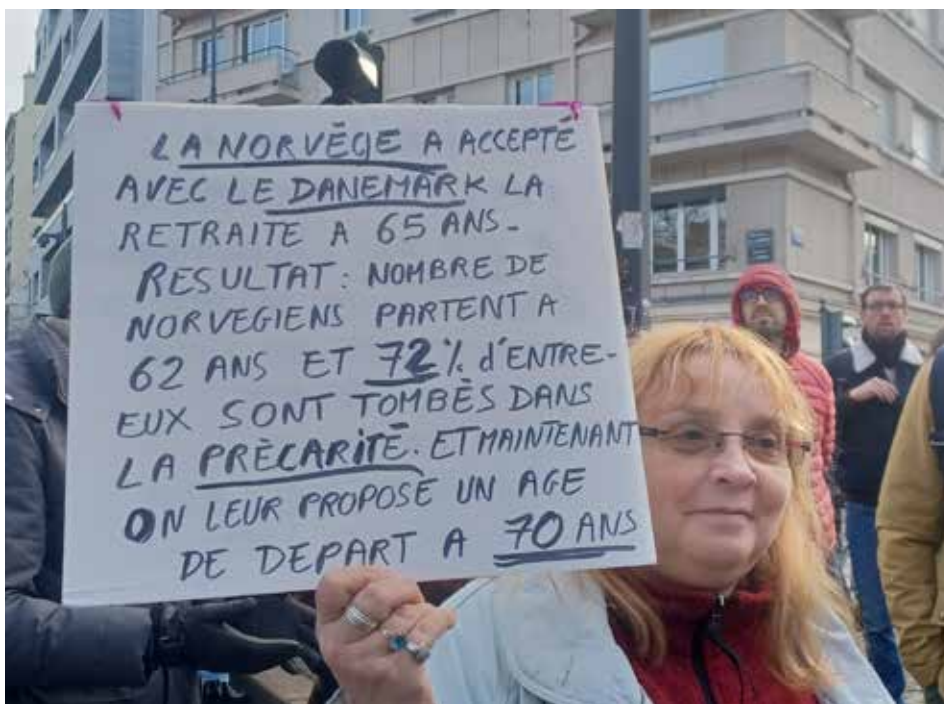 LA NORVÈGE A ACCEPTÉ
AVEC LE DANEMARK LA
RETRAITE A 65 ANS-
RESULTAT: NOMBRE DE
NORVEGIENS PARTENT A
62 ANS ET 72% d'ENTRE-
EUX SONT TOMBÈS DANS
LA PRÈCARITÉ. ET MAINTENANT
ON LEUR PROPOSE UN AGE
DE DEPART A 70 ANS